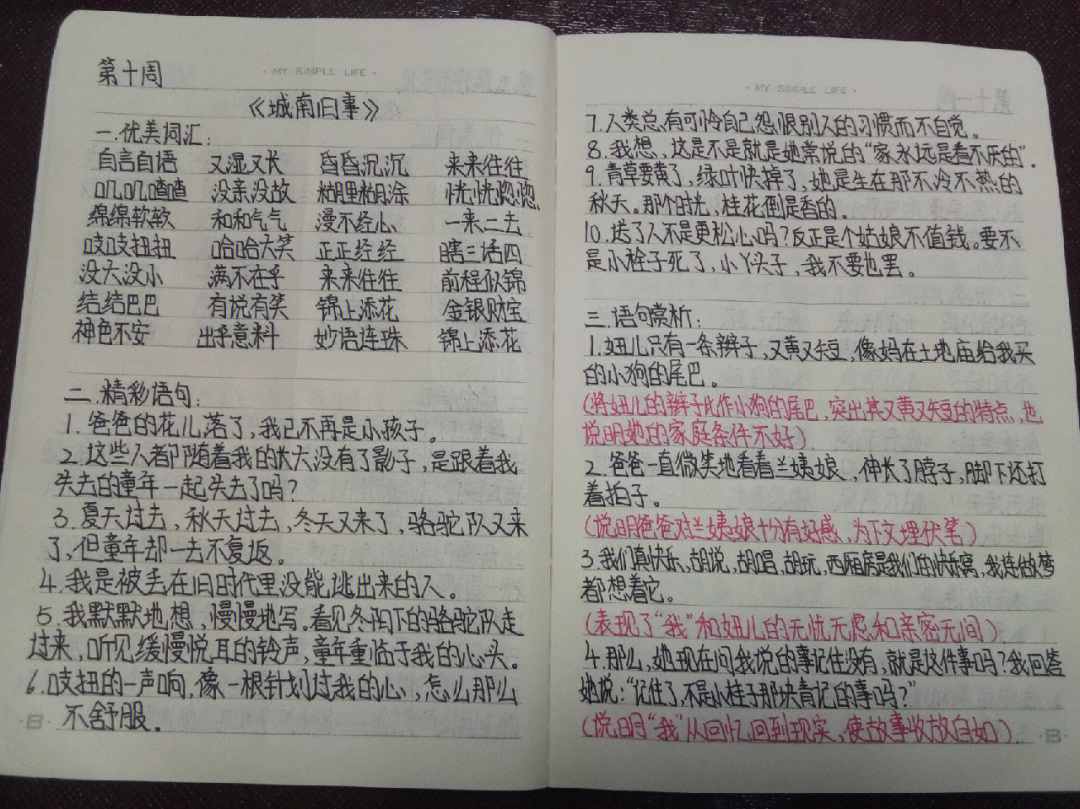 · MY SIMPLE LIFE ·
第十周
《城南旧事》
一.优美词汇:
自言自语 又湿又长 昏昏沉沉 来来往往
叽叽喳喳 没亲没故 糊里糊涂 恍恍惚惚
绵绵软软 和和气气 漫不经心 一来二去
吱吱扭扭 哈哈大笑 正正经经 瞎三话四
没大没小 满不在乎 来来往往 前程似锦
结结巴巴 有说有笑 锦上添花 金银财宝
神色不安 出乎意料 妙语连珠 锦上添花
二.精彩语句:
1.爸爸的花儿落了,我已不再是小孩子。
2.这些人都随着我的长大没有了影子,是跟着我
失去的童年一起失去了吗?
3.夏天过去,秋天过去,冬天又来了,骆驼队又来
了,但童年却一去不复返。
4.我是被丢在旧时代里没能逃出来的人。
5.我默默地想,慢慢地写。看见冬阳下的骆驼队走
过来,听见缓慢悦耳的铃声,童年重临于我的心头。
6.吱扭的一声响,像一根针划过我的心,怎么那么
不舒服。
·B·
· MY SIMPLE LIFE ·
7.人类总有可怜自己怨恨别人的习惯而不自觉。
8.我想,这是不是就是她常说的“家永远是看不厌的”.
9.青草要黄了,绿叶快掉了,她是生在那不冷不热的
秋天。那个时光,桂花倒是香的。
10.送了人不是更松心吗?反正是个姑娘不值钱。要不
是小栓子死了,小丫头子,我不要也罢。
三.语句赏析:
1.妞儿只有一条辫子,又黄又短,像妈在土地庙给我买
的小狗的尾巴。
(将妞儿的辫子比作小狗的尾巴,突出其又黄又短的特点,也
说明她的家庭条件不好)
2.爸爸一直微笑地看着兰姨娘,伸长了脖子,脚下还打
着拍子。
(说明爸爸对兰姨娘十分有好感,为下文埋伏笔)
3.我们真快乐,胡说,胡唱,胡玩,西厢房是我们的快乐窝,我连做梦
都想着它。
(表现了“我”和妞儿的无忧无虑和亲密无间)
4.那么,她现在问我说的事记住没有,就是这件事吗?我回答
她说:“记住了,不是小桂子那块青记的事吗?”
(说明“我”从回忆回到现实,使故事收放自如)
·B·